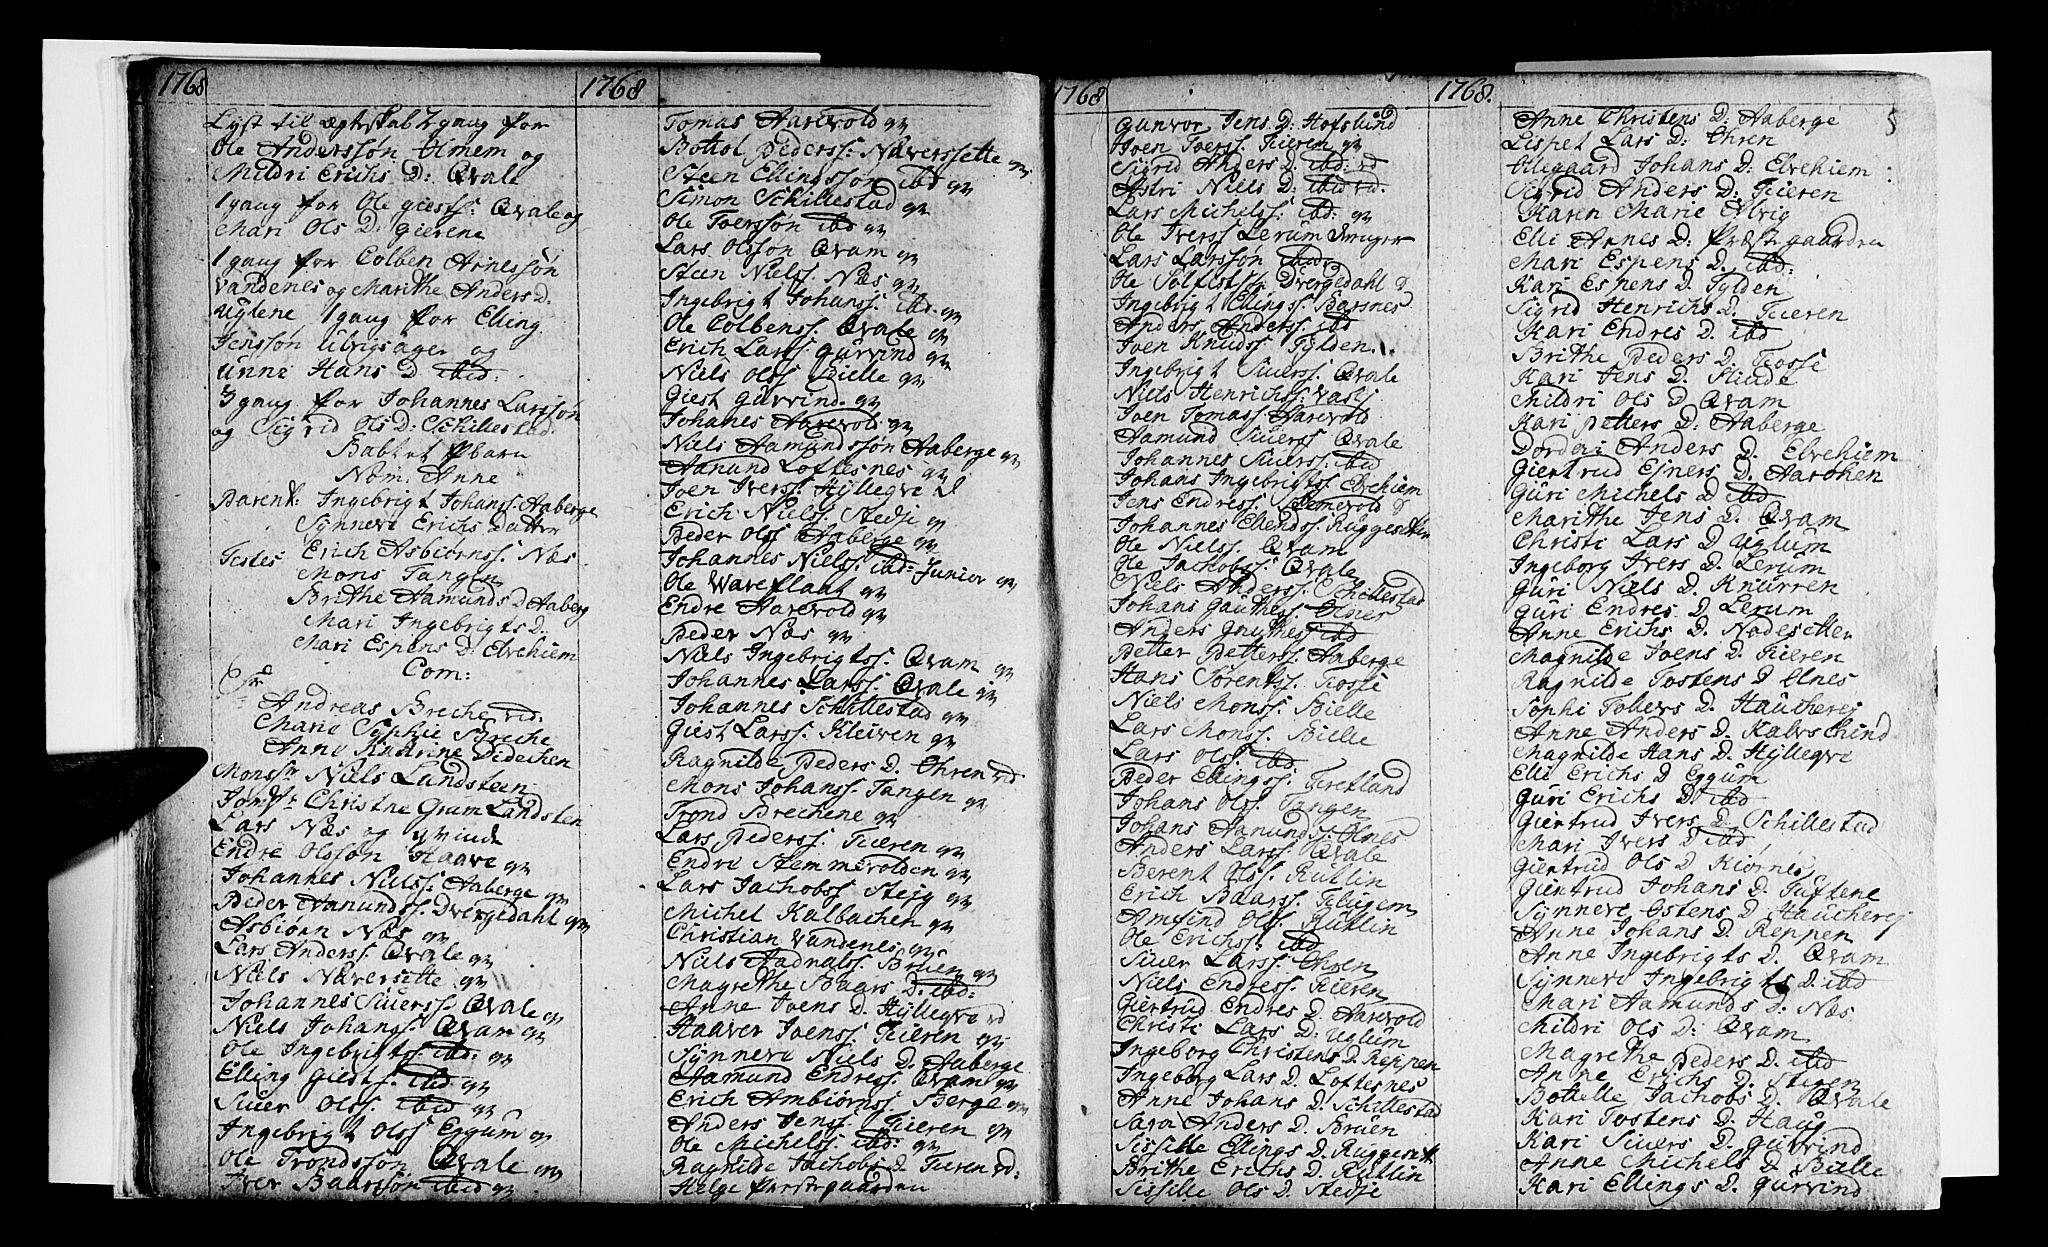 1768
Lyst til ægteskab 1 gang for
Ole Anderssøn Olmem og
Mildri Erichs D: Qvale
1 gang for Ole giestss: Qvale og
Mari Ols D: Fierene
1 gang for Colben Arnessøn
Vandenes og Marithe Anders D.
Uglene 1 gang for Elling
Jenssøn Ulvigsager og
Unni Hans D ibid:
3 gang for Johannes Larssøn
og Sigrid Ols D: Schillestad.
Babtet Pbarn
Nom. Anne
Parent: Ingebrigt Johanss: Aaberge
Synneve Erichs Datter
Testes Erich Asbiørnss: Næs
Mons Tangen
Brithe Aamunds D Aaberg
Mari Ingebrigts D.
Mari Espens D: Elvehiem
Com:
Andreas Breche
Maria Sophie Breche
Anne Didechen
Monss:r Niels Lundsteen
Jomf:r Christne Gram Landsten
Lars Næs og qvinde
Endre Olssøn Haave qv
Johannes Nielss: Aaberge qv
Peder Amundss: Dvergedahl qv
Asbiørn Næs qv
Lars Anderss: Qvale qv
Niels Næversette qv
Johannes Siuerss: Qvale qv
Niels Johanss: Qvam qv
Ole Ingebrigtss. ibd: qv
Elling Giestss. ibd qv
Siuer Olss. ibid qv
Ingebrigt Olss Eggum qv
Ole Trondssøn Qvale qv
Iver Baardsøn ibid qv
1768
Tomas Aarevold qv
Botiol Pederss: Næverssette qv
Steen Ellingssøn ibd qv
Simon Schillestad qv
Ole Joerssøn ibd qv
Lars Olssøn Qvam qv
Steen Nielss. Næs qv
Ingebrigt Johanss: ibd. qv
Ole Colbenss. Qvale qv
Erich Larss: gurvind qv
Niels Olss Bielle qv
Giest gurvind. qv
Johanes Aarevold qv
Niels Aamundssøn Aaberge qv
Aanund Loftesnes qv
Joen Iverss: Hyllegre
Erich Nielss Stedje qv
Peder Olss Aaberge qv
Johannes Nielss: ibd: Junior qv
Ole Wareflaat qv
Endre Aarevold qv
Peder Næs qv
Niels Ingebrigtss. Qvam qv
Johannes Larss. Qvale qv
Johannes Schillestad qv
Giest Larss. Kleiven qv
Ragnilde Peders D. Ohren
Mons Johanss. Tangen qv
Trond Brechene qv
Lars Pederss: Fieren qv
Endre Stemmevolden qv
Lars Jachobss Stejg qv
Michel Kalbachen qv
Christian Vandenes qv
Niels Bruen qv
Magrethe Baars D: ibd:
Anne Joens D. Hyllegre
Haaver Joenss: Fieren qv
Synneve Niels D. Aaberge
Aamund Endress. Qvam qv
Erich Ambiørnss. Berge qv
Anders Jenss. Fieren qv
Ole Michelss ibd: qv
Ragnilde Jachobs D Fieren
Helge Præstegaarden
1768
Gunvor Jens D: Hofslund
Joen Joerss: Fieren qv
Sigrid Anders D: ibd:
Astri Niels D: ibid
Lars Michelss: ibd: qv
Ole Iverss Lerum
Lars Larssøn ibid:
Ole Dvergedahl
Ingebrigt Ellingss Barsnes
Anders Anderss. ibd
Joen Knudss Fylden.
Ingebrigt Siuerss. Qvale
Niels Henrichss:
Joen Tomass. Aarevold
Aamund Siuerss Qvale
Johannes Siuerss: ibd
Johans Ingebrigtss Elvehiem
Jens Endress. Stemevold
Johannes Ellendss: Ruggesetter
Ole Nielss. Qvam
Ole Jachobss. Qvale
Niels Anderss. Schillestad
Johans Gauthess. Olnes
Anders gauthess ibd
Petter Petterss: Aaberge
Hans Sorentss. Fosse
Niels Monss. Bielle
Lars Monss. Bielle
Lars Olss. ibid.
Peder Ellingss. Fretland
Johans Olss. Tangen
Johans Aamundss Olnes
Anders Larss. Qvale
Berent Olss. Rutlin
Erich Baarss. Flugem
Amfind Olss. Rutlin
Ole Erichss: ibd
Siuer Larss. Ohren
Niels Endress. Fieren
Giertrud Endres D. Aarevold
Christi Lars D: Uglum
Ingeborg Christens D. Reppen
Ingeborg Lars D. Loftesnes
Anne Johans D. Schillestad
Sara Anders D. Bruen
Sissille Ellings D. Ruggesett
Brithe Erichs D. Rutlin
Sissille Ols D. Stedje
1768.
5
Anne Christens D: Aaberge
Lispet Lars D: Ohren
Ollegaard Johans D. Elvehiem:
Sigrid Anders D: Fieren
Karen Marie Ulvig
Elli Arnes D: Præstegaarden
Mari Espens D. ibd:
Kari Espens D. Fylden
Sigrid Henrichs D. Fieren
Kari Endres D. ibd
Brithe Peders D. Fosse
Kari Jens D. Slinde
Mildri Ols D Qvam
Kari Petters D: Aaberge
Dordei Anders D. Elvehiem
Giertrud Esners D. Aarohen
Guri Michels D ibd
Marithe Jens D. Qvam
Christi Lars D Uglum
Ingeborg Ivers D. Lerum
Guri Niels D. Knurren
Guri Endres D. Lerum
Anne Erichs D. Nodesetter
Magnilde Joens D. Fieren
Ragnilde Tostens D Olnes
Sophi Tobers D. Haucheres
Anne Anders D. Kalvschind
Magnilde Hans D. Hyllegre
Elli Erichs D Eggum
Guri Erichs D. ibd
Giertrud Ivers D. Schillestad
Mari Ivers D ibd
Giertrud Ols D Kiørnes
Giertrud Johans D. Tuftene
Synneve Ostens D Haucheres
Anne Johans D. Reppen
Anne Ingebrigts D. Qvam
Synneve Ingebrigts D. ibd
Mari Aamunds D: Næs
Mildri Ols D: Qvam
Magrethe Peders D. ibd
Anne Erichs D. Stegen
Botille Jachobs D. Qvale
Kari Tostens D. Haug
Kari Siuers D. gurvind
Anne Michels D Bielle
Kari Ellings D. gurvind